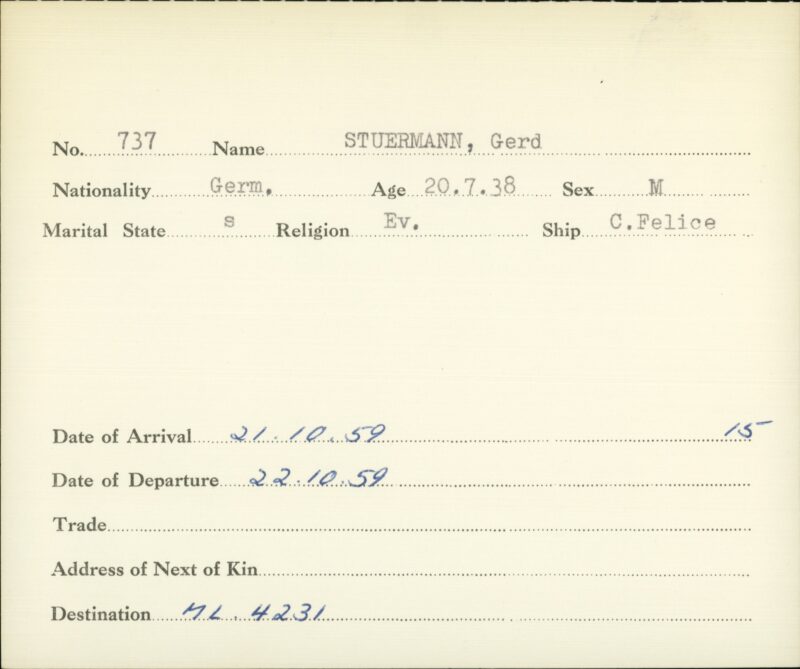 No. 737 Name STUERMANN, Gerd
Nationality Germ. Age 20.7.38 Sex M
Marital State s Religion Ev. Ship C.Felice
Date of Arrival 21.10.59 15
Date of Departure 22.10.59
Trade
Address of Next of Kin
Destination ML. 4231